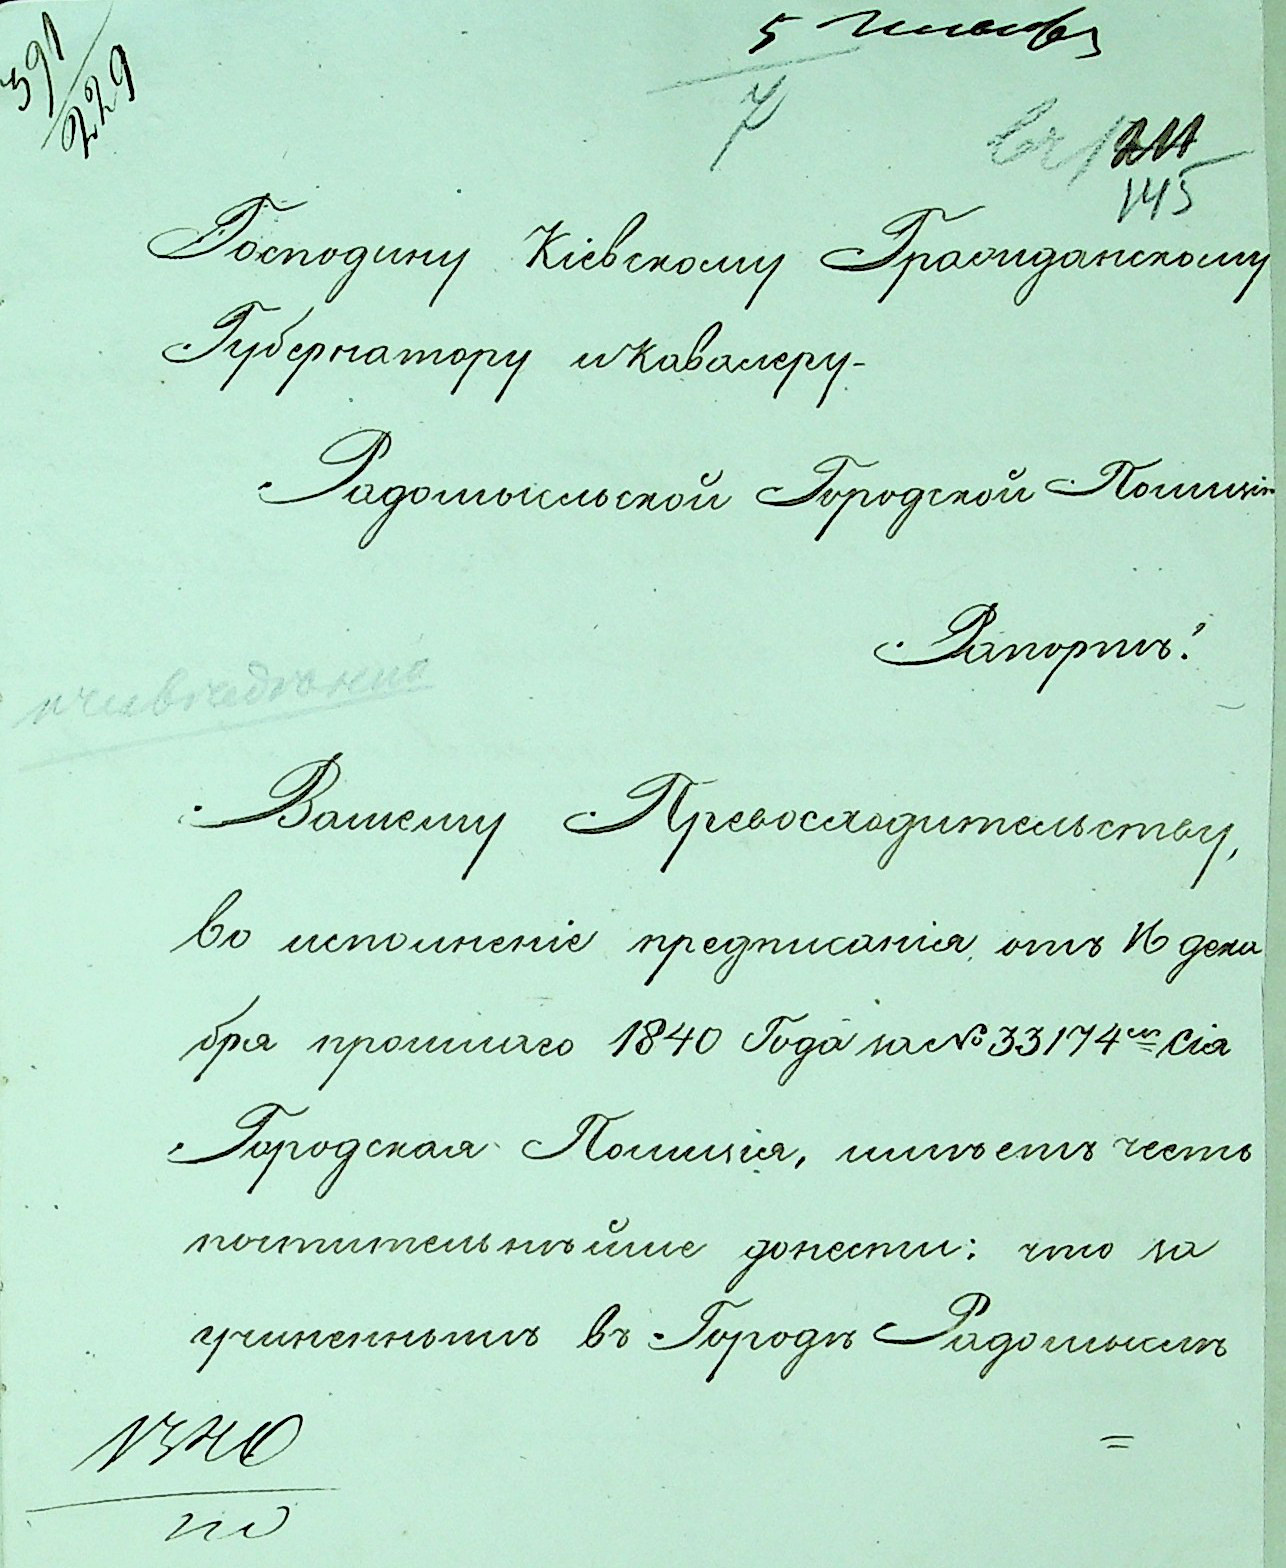 391
229
5
7
211
145
Господину Кіевскому Гражданскому
Губернатору и Кавалеру-
Радомысльской Городской Полиціи
Рапортъ!
Вашему Превосходительству,
во исполненіе предписанія отъ 16 дека
бря прошлаго 1840 Года за № 33174 сія
Городская Полиція, имѣетъ честь
почтительнѣйше донести: что за
учиненнымъ въ Городѣ Радомыслѣ
=